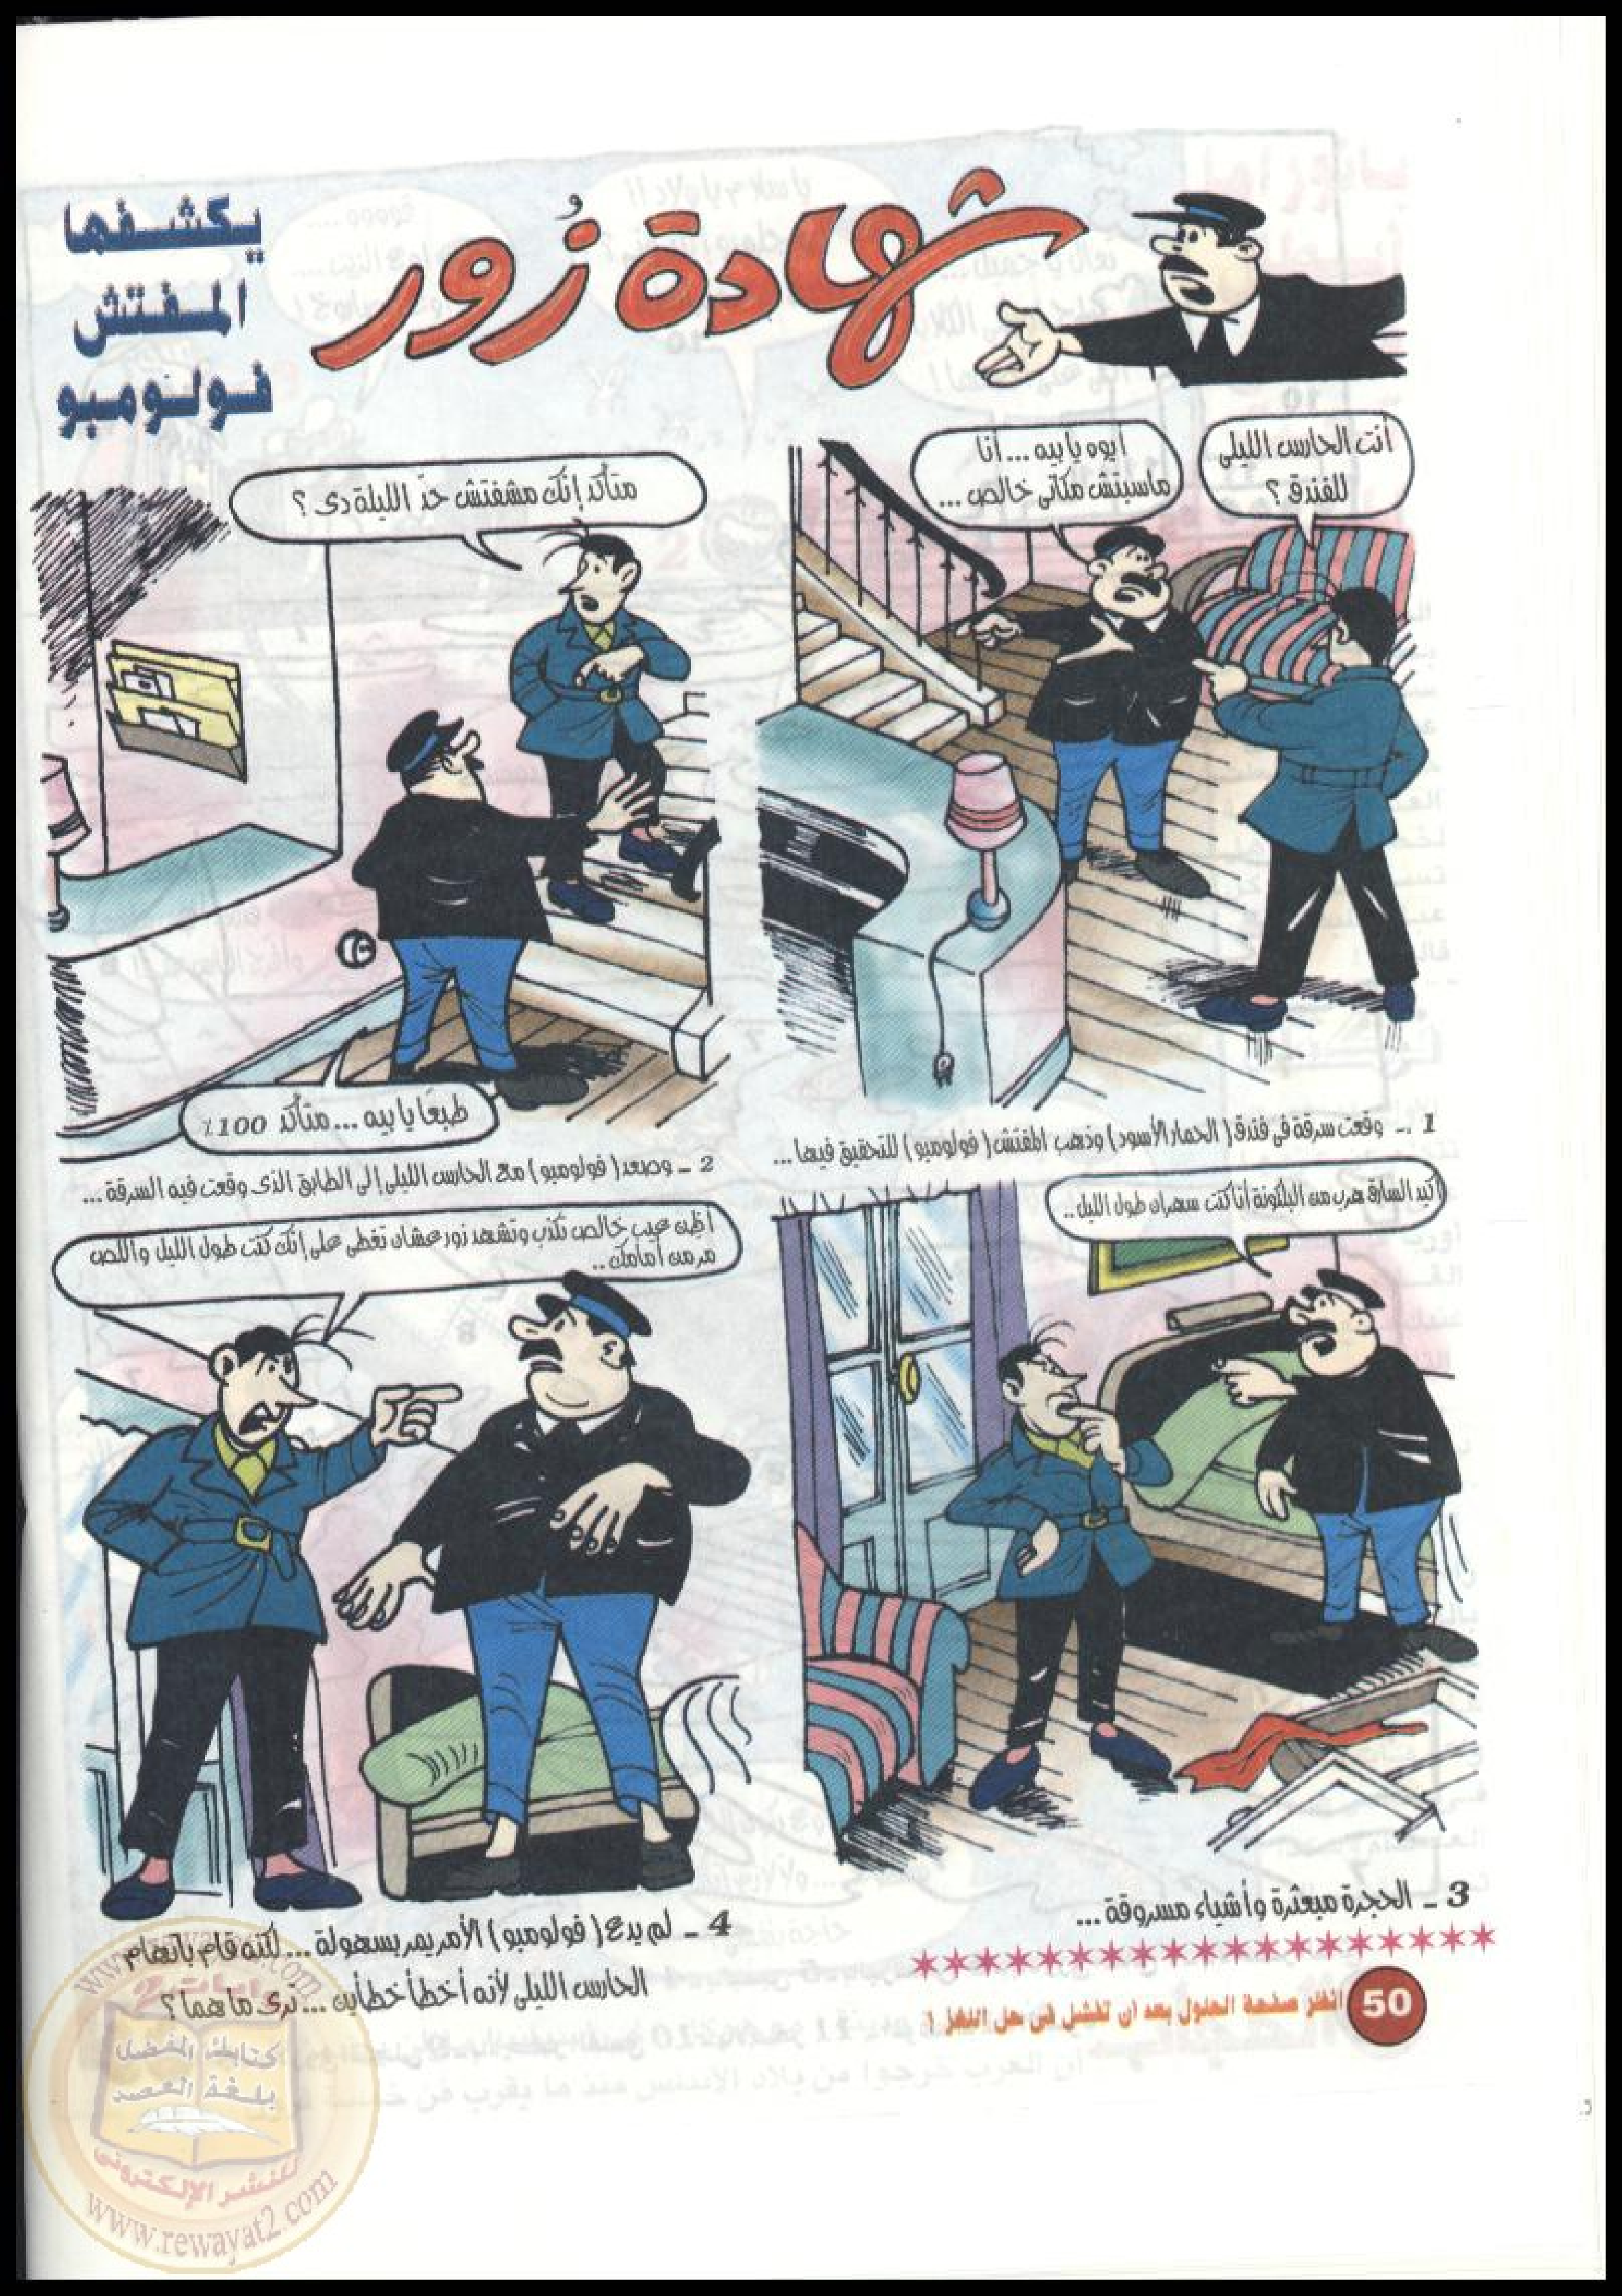 شهادة زُور
يكشفها
المفتش
فولومبو
أنت الحارس الليلى
للفندق ؟
أيوه يا بيه ... أنا
ماسبتش مكانى خالص ...
1 ـ وقعت سرقة فى فندق ( الحمار الأسود ) وذهب المفتش ( فولومبو ) للتحقيق فيها ...
متأكد إنك مشفتش حدّ الليلة دى ؟
طبعًا يا بيه ... متأكد 100٪
2 ـ وصعد ( فولومبو ) مع الحارس الليلى إلى الطابق الذى وقعت فيه السرقة ...
أكيد السارق هرب من البلكونة أنا كنت سهران طول الليل ..
3 ـ الحجرة مبعثرة وأشياء مسروقة ...
أظن عيب خالص تكذب وتشهد زور عشان تغطى على إنك كنت طول الليل واللص
مر من أمامك ..
4 ـ لم يدع ( فولومبو ) الأمر يمر بسهولة ... لكنه قام باتهام
الحارس الليلى لأنه أخطأ خطأين ... ترى ما هما ؟
50
انظر صفحة الحلول بعد أن تفشل فى حل اللغز !
www.rewayat2.com
كتابك المفضل
بلغة العصر
للنشر الإلكترونى
www.rewayat2.com